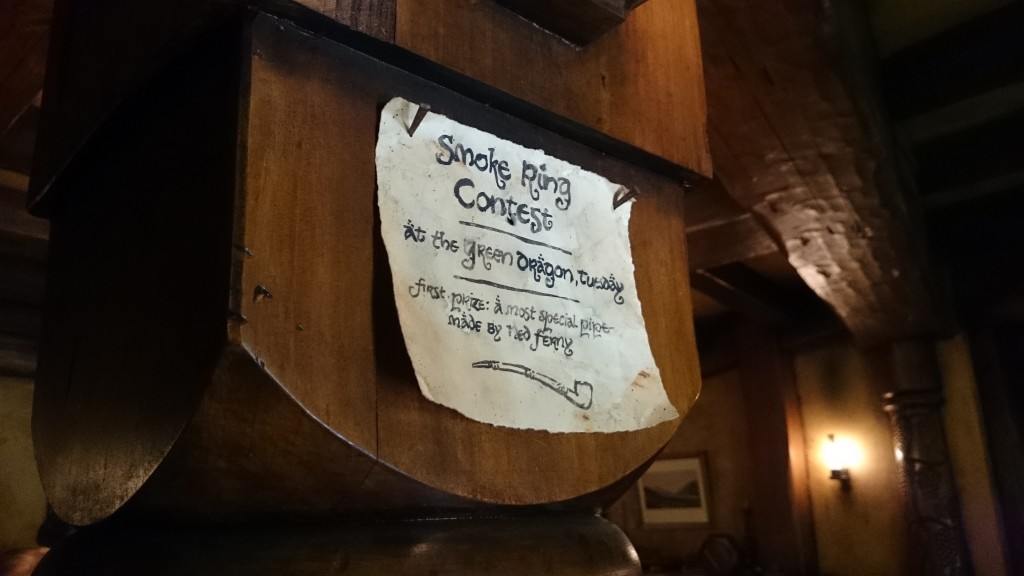 Smoke Ring
Contest
at the green Dragon, Tuesday
first prize: a most special pipe
made by Ted Ferny